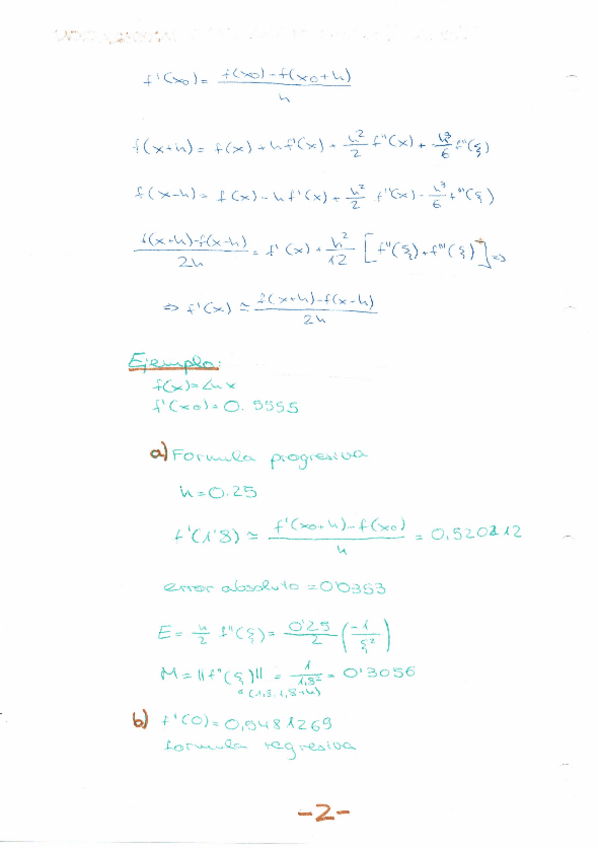 f'(x0) = f(x0)-f(x0+h) / h
f(x+h) = f(x) + hf'(x) + h²/2 f''(x) + h³/6 f'''(ξ)
f(x-h) = f(x) - hf'(x) + h²/2 f''(x) - h³/6 f'''(ξ)
f(x+h)-f(x-h) / 2h = f'(x) + h²/12 [f'''(ξ) + f'''(ξ)] ⇒
⇒ f'(x) ≃ f(x+h)-f(x-h) / 2h
Ejemplo:
f(x) = Ln x
f'(x0) = 0.5555
a) Formula progresiva
h = 0.25
f'(1'8) ≃ f'(x0+h)-f(x0) / h = 0,520212
error absoluto = 0'0353
E = h/2 f''(ξ) = 0'25/2 (-1/ξ²)
M = ||f''(ξ)|| = 1/1,8² = 0'3056
(1,8, 1,8+h)
b) f'(0) = 0,5481269
formula regresiva
-2-